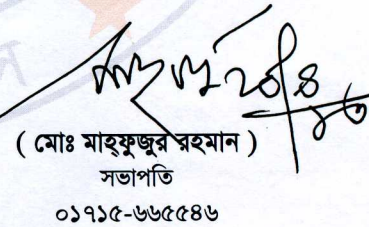 ( মোঃ মাহ্ফুজুর রহমান )
সভাপতি
০১৭১৫-৬৬৫৫৪৬